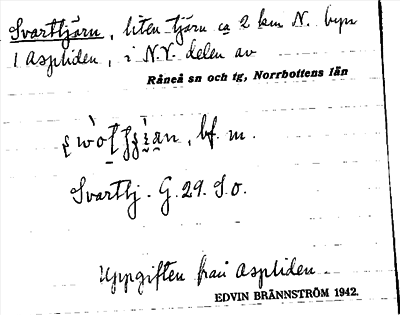 Svarttjärn, liten tjärn ca 2 km N. byn
1 Aspliden, i N.V. delen av
Råneå sn och tg, Norrbottens län
bf. m.
Svarttj. G. 29. S.o.
Uppgiften från Aspliden
EDVIN BRÄNNSTRÖM 1942.